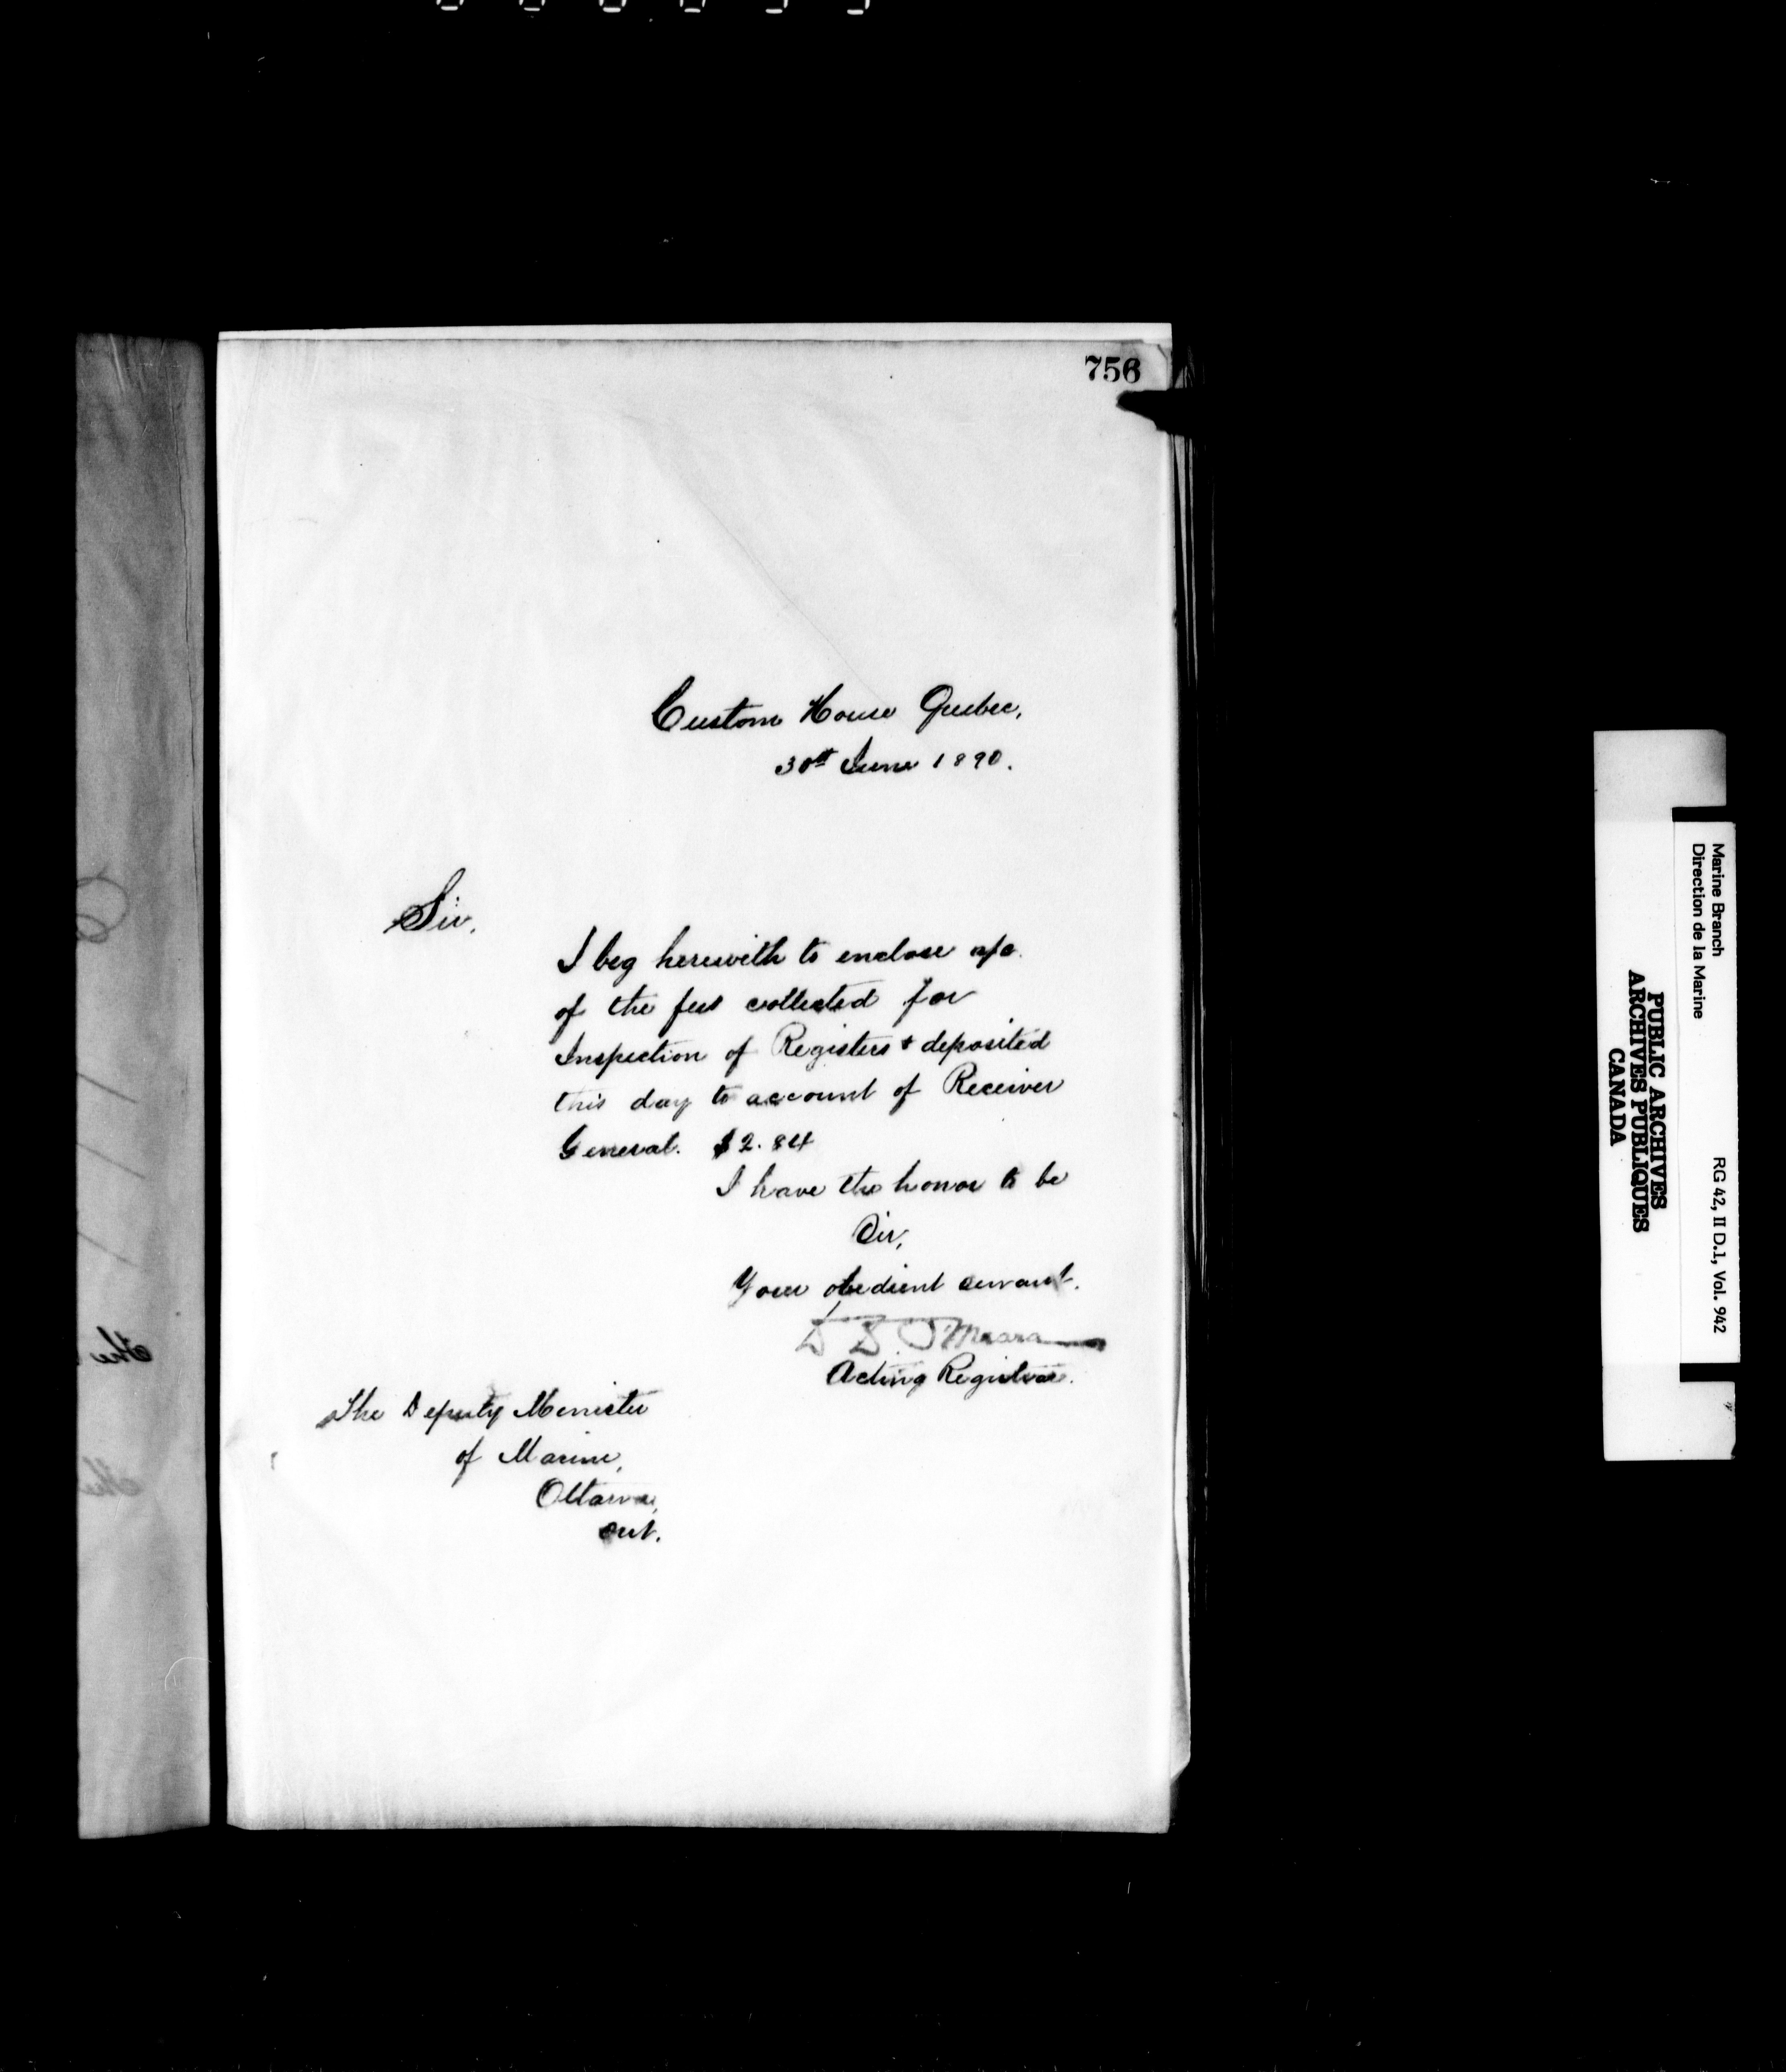 756
Custom House Quebec,
30th June 1890.
Sir,
I beg herewith to enclose a/c
of the fees collected for
Inspection of Registers & deposited
this day to account of Receiver
General. $2.84
I have the honor to be
Sir,
Your obedient servant.
D D O'Meara
Acting Registrar.
The Deputy Minister
of Marine,
Ottawa,
Ont.
The
The
Marine Branch
Direction de la Marine
RG 42, II D.1, Vol. 942
PUBLIC ARCHIVES
ARCHIVES PUBLIQUES
CANADA